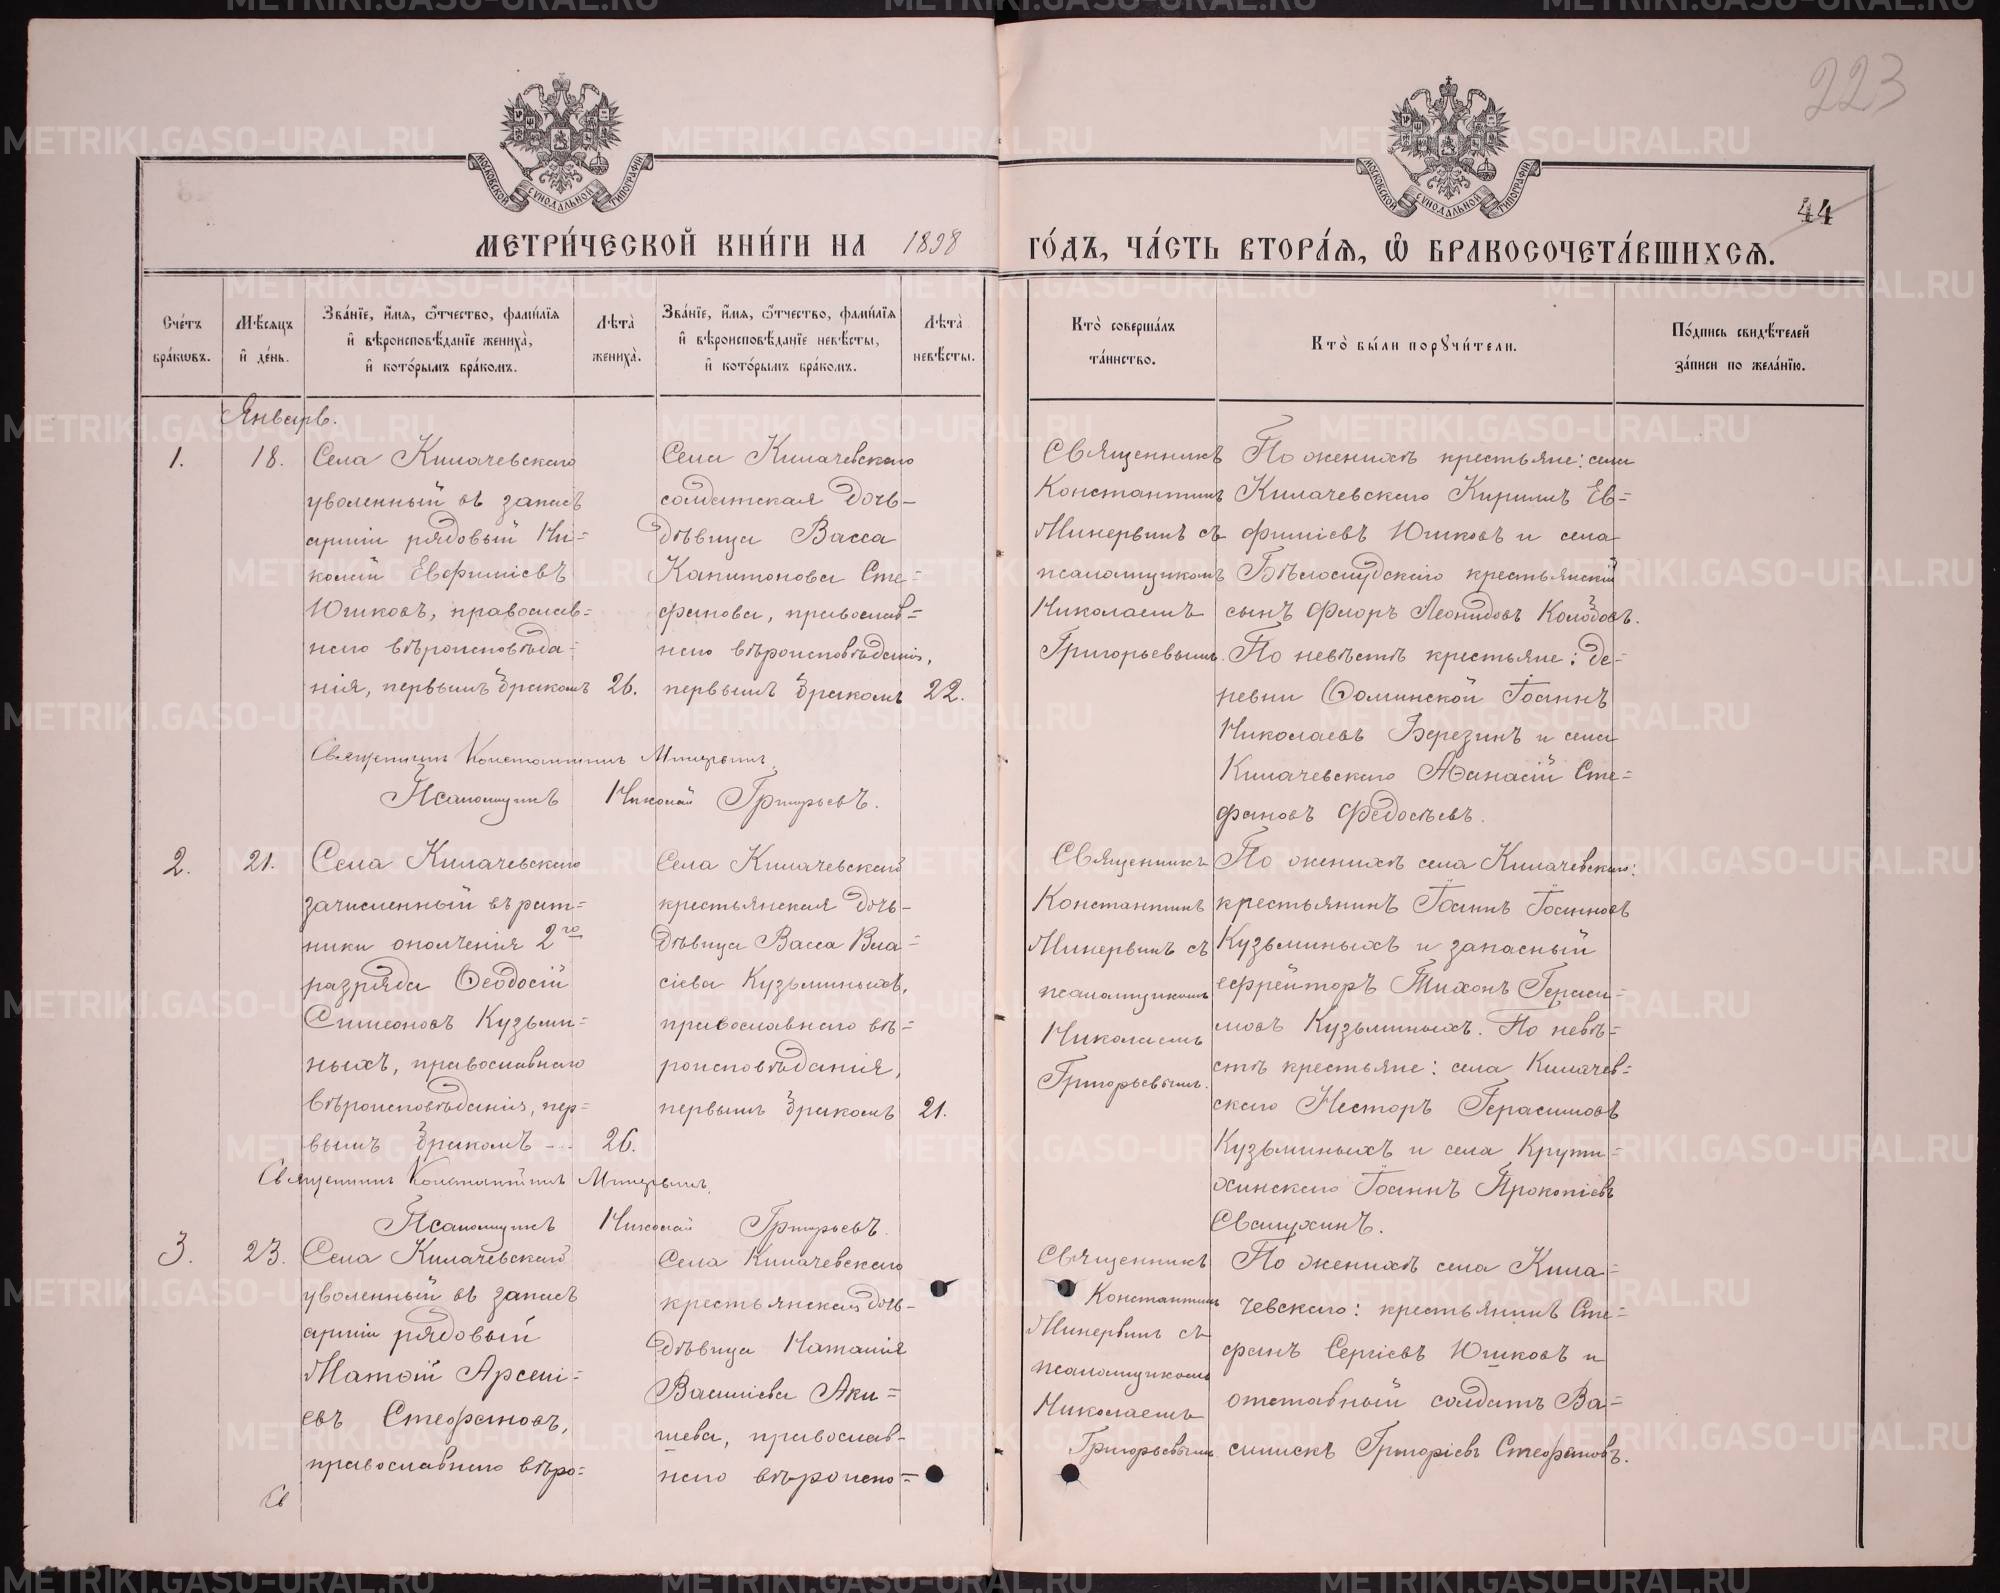 223
44
МОСКОВСКОЙ СѴНОДАЛЬНОЙ ТИПОГРАФІИ
МОСКОВСКОЙ СѴНОДАЛЬНОЙ ТИПОГРАФІИ
МЕТРИ́ЧЕСКОЙ КНИ́ГИ НА 1898 ГО́ДЪ, ЧА́СТЬ ВТОРА́Ѧ, Ѡ҆ БРАКОСОЧЕТА́ВШИХСѦ.
Сче́тъ бра́кѡвъ.
Мѣ́сѧцъ и҆ де́нь.
Зва́нїе, и҆́мѧ, ѿ́чество, фами́лїѧ и҆ вѣроисповѣ́данїе жениха̀, и҆ кото́рымъ бра́комъ.
Лѣта̀ жениха̀.
Зва́нїе, и҆́мѧ, ѿ́чество, фами́лїѧ и҆ вѣроисповѣ́данїе невѣ́сты, и҆ кото́рымъ бра́комъ.
Лѣта̀ невѣ́сты.
Кто̀ соверша́лъ та́инство.
Кто̀ бы́ли порꙋчи́тели.
По́дпись свидѣ́телей за́писи по жела́нїю.
Январь.
1.
18.
Села Килачевскаго
уволенный въ запасъ
арміи рядовый Ни=
колай Евфиміевъ
Юшковъ, православ=
наго вѣроисповѣда=
нія, первымъ бракомъ
26.
Села Килачевскаго
солдатская дочь-
дѣвица Васса
Капитонова Сте=
фанова, православ=
наго вѣроисповѣданія,
первымъ бракомъ
22.
Священникъ
Константинъ
Минервинъ съ
псаломщикомъ
Николаемъ
Григорьевымъ.
По женихѣ крестьяне: села
Килачевскаго Кириллъ Ев=
фиміевъ Юшковъ и села
Бѣлослудскаго крестьянскій
сынъ Флоръ Леонидовъ Колобовъ.
По невѣстѣ крестьяне: де=
ревни Ѳоминской Іоаннъ
Николаевъ Березинъ и села
Килачевскаго Аѳанасій Сте=
фановъ Федосѣевъ.
Священникъ Константинъ Минервинъ.
Псаломщикъ Николай Григорьевъ.
2.
21.
Села Килачевскаго
зачисленный въ рат=
ники ополченія 2го
разряда Ѳеодосій
Симеоновъ Кузьми=
ныхъ, православнаго
вѣроисповѣданія, пер=
вымъ бракомъ -...
26.
Села Килачевскаго
крестьянская дочь-
дѣвица Васса Вла=
сіева Кузьминыхъ,
православнаго вѣ=
роисповѣданія,
первымъ бракомъ
21.
Священникъ
Константинъ
Минервинъ съ
псаломщикомъ
Николаемъ
Григорьевымъ.
По женихѣ села Килачевскаго:
крестьянинъ Іоаннъ Іоанновъ
Кузьминыхъ и запасный
ефрейторъ Тихонъ Гераси=
мовъ Кузьминыхъ. По невѣ=
стѣ крестьяне: села Килачев=
скаго Несторъ Герасимовъ
Кузьминыхъ и села Крути=
хинскаго Іоаннъ Прокопіевъ
Свалухинъ.
Священникъ Константинъ Минервинъ.
Псаломщикъ Николай Григорьевъ.
3.
23.
Села Килачевскаго
уволенный въ запасъ
арміи рядовый
Матѳій Арсені=
евъ Стефановъ,
православнаго вѣро=
Св
Села Килачевскаго
крестьянская дочь-
дѣвица Наталія
Василіева Аки=
шева, православ-
наго вѣроиспо=
Священникъ
Константинъ
Минервинъ съ
псаломщикомъ
Николаемъ
Григорьевымъ
По женихѣ села Кила=
чевскаго: крестьянинъ Сте=
фанъ Сергіевъ Юшковъ и
отставный солдатъ Ва=
силискъ Григоріевъ Стефановъ.
METRIKI.GASO-URAL.RU